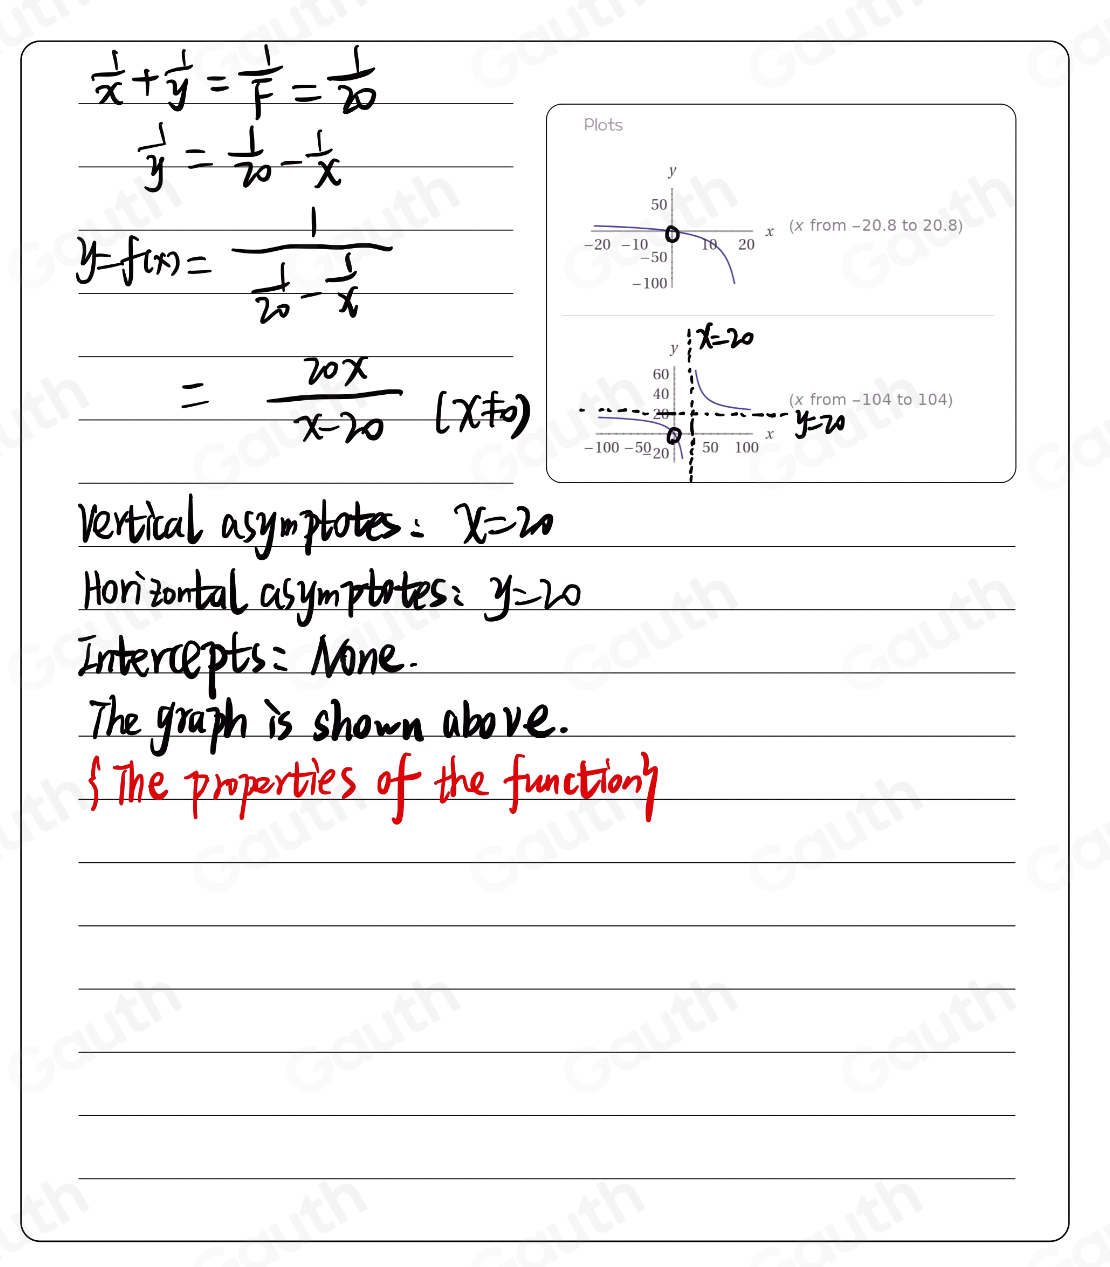 1/x + 1/y = 1/F = 1/20
1/y = 1/20 - 1/x
y=f(x) = 1/(1/20 - 1/x)
= 20x/(x-20) (x≠0)
Plots
y
50
−20 −10 10 20 x
−50
−100
(x from −20.8 to 20.8)
x=20
y
60
40
20
(x from −104 to 104)
y=20
x
−100 −50 50 100
−20
Vertical asymptotes: x=20
Horizontal asymptotes: y=20
Intercepts: None.
The graph is shown above.
{The properties of the function}
Gauth